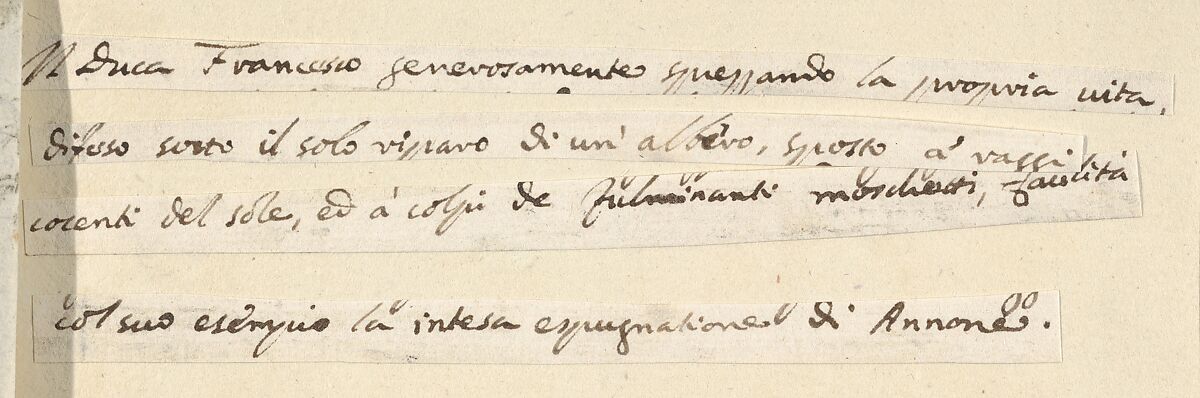 Il Duca Francesco generosamente sprezzando la propria vita,
difeso sotto il solo riparo di un' albero, sposto a' raggi
cocenti del sole, ed à colpi de fulminanti moschetti, facilità
col suo esempio la intesa espugnatione di Annone.